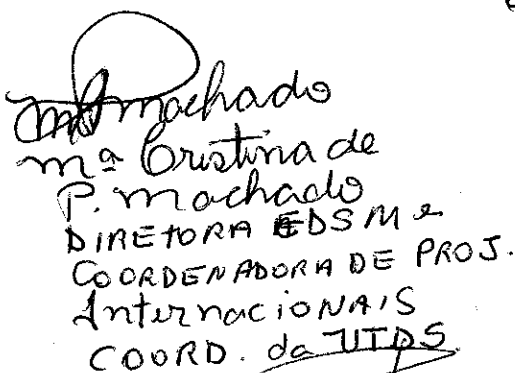 Machado
Mª Cristina de
P. Machado
DIRETORA EDSM e
COORDENADORA DE PROJ.
InternacioNAIS
COORD. da UTDS